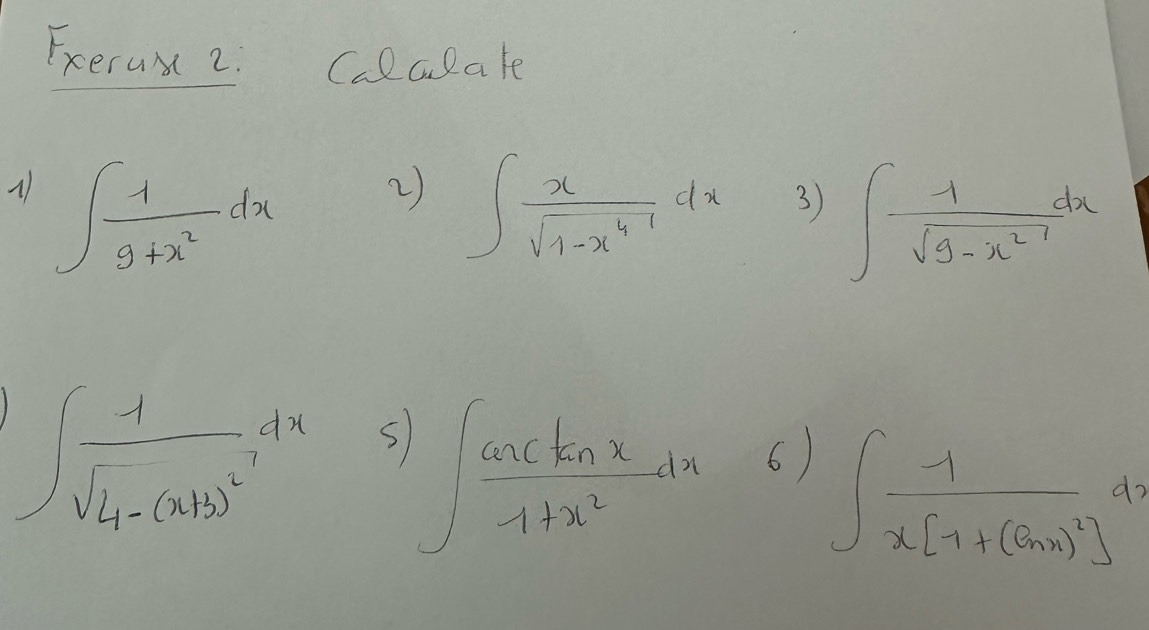 Exercise 2: Calculate
1) ∫ 1/(9+x²) dx 2) ∫ x/√(1-x⁴) dx 3) ∫ 1/√(9-x²) dx
) ∫ 1/√(4-(x+3)²) dx 5) ∫ arctan x/(1+x²) dx 6) ∫ 1/(x[1+(ln x)²]) dx